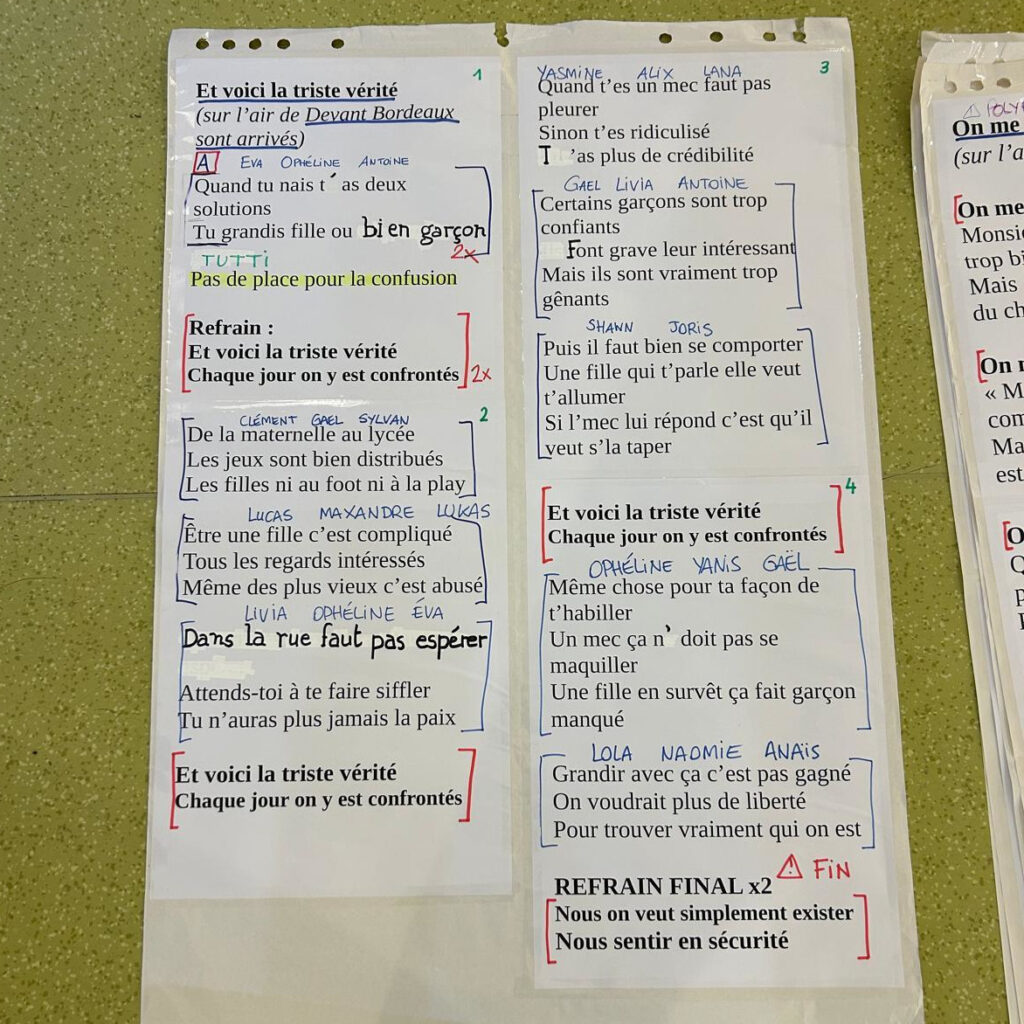 1
Et voici la triste vérité
(sur l'air de Devant Bordeaux
sont arrivés)
A EVA OPHÉLINE ANTOINE
Quand tu nais t´as deux
solutions
Tu grandis fille ou bien garçon
2x
TUTTI
Pas de place pour la confusion
Refrain :
Et voici la triste vérité
Chaque jour on y est confrontés 2x
2
CLÉMENT GAEL SYLVAN
De la maternelle au lycée
Les jeux sont bien distribués
Les filles ni au foot ni à la play
LUCAS MAXANDRE LUKAS
Être une fille c'est compliqué
Tous les regards intéressés
Même des plus vieux c'est abusé
LIVIA OPHÉLINE ÉVA
Dans la rue faut pas espérer
Attends-toi à te faire siffler
Tu n'auras plus jamais la paix
Et voici la triste vérité
Chaque jour on y est confrontés
3
YASMINE ALIX LANA
Quand t'es un mec faut pas
pleurer
Sinon t'es ridiculisé
T 'as plus de crédibilité
GAEL LIVIA ANTOINE
Certains garçons sont trop
confiants
Font grave leur intéressant
Mais ils sont vraiment trop
gênants
SHANN JORIS
Puis il faut bien se comporter
Une fille qui t'parle elle veut
t'allumer
Si l'mec lui répond c'est qu'il
veut s'la taper
4
Et voici la triste vérité
Chaque jour on y est confrontés
OPHÉLINE YANIS GAËL
Même chose pour ta façon de
t'habiller
Un mec ça n' doit pas se
maquiller
Une fille en survêt ça fait garçon
manqué
LOLA NAOMIE ANAÏS
Grandir avec ça c'est pas gagné
On voudrait plus de liberté
Pour trouver vraiment qui on est
⚠ FIN
REFRAIN FINAL x2
Nous on veut simplement exister
Nous sentir en sécurité
On me
(sur l'a
On me
Monsie
trop bi
Mais
du ch
« M
com
Ma
est